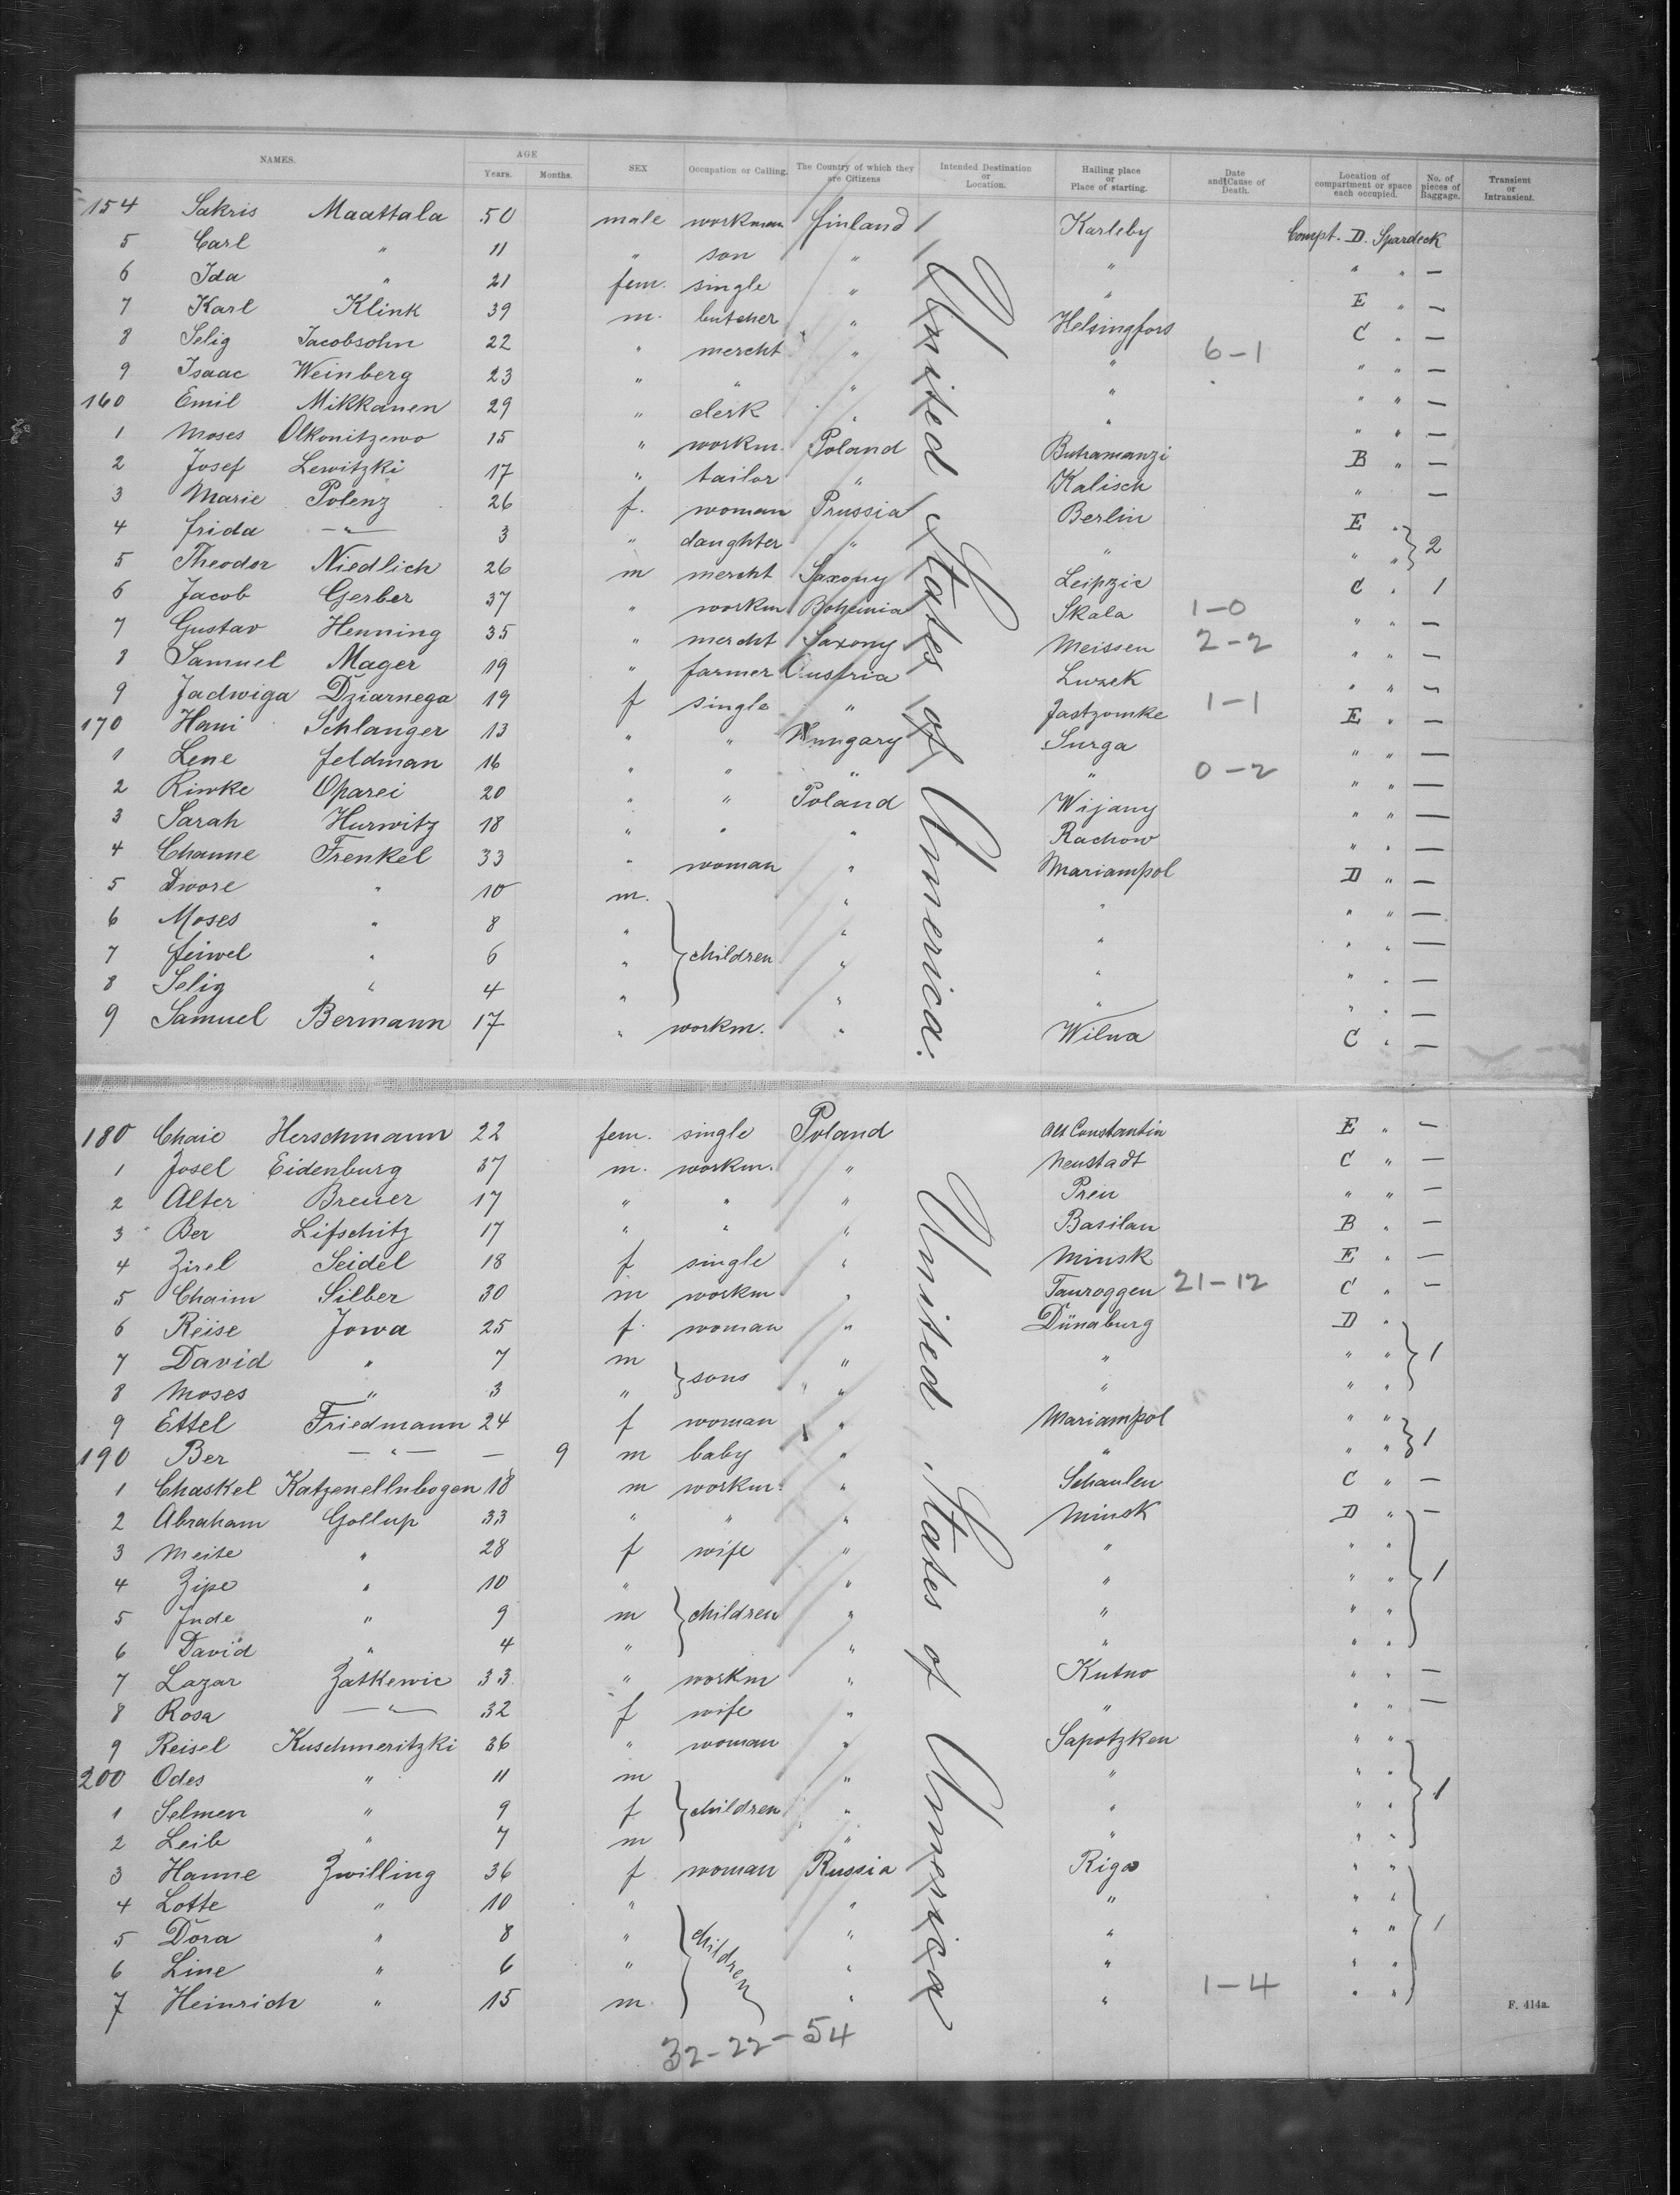 NAMES. AGE SEX Occupation or Calling. The Country of which they are Citizens Intended Destination or Location. Hailing place or Place of starting. Date and Cause of Death. Location of compartment or space each occupied. No. of pieces of Baggage. Transient or Intransient.
Years. Months.
154 Sakris Maattala 50 male workman Finland Karleby Compt. D. Spardeck
5 Carl " 11 " son " " " " —
6 Ida " 21 fem. single " " E " —
7 Karl Klink 39 m. butcher " Helsingfors C " —
8 Selig Jacobsohn 22 " mercht " " 6-1 " " —
9 Isaac Weinberg 23 " " " " " " —
160 Emil Mikkanen 29 " clerk " " " " —
1 Moses Olkonitzewo 15 " workm. Poland Butramanzi B " —
2 Josef Lewitzki 17 " tailor " Kalisch " —
3 Marie Polenz 26 f. woman Prussia Berlin E "
4 Frida —"— 3 " daughter " " " " } 2
5 Theodor Niedlich 26 m mercht Saxony Leipzic C " 1
6 Jacob Gerber 37 " workm Bohemia Skala 1-0 " " —
7 Gustav Henning 35 " mercht Saxony Meissen 2-2 " " —
8 Samuel Mager 19 " farmer Austria Luzek " " —
9 Jadwiga Dziarnega 19 f single " Jastzomke 1-1 E " —
170 Hani Schlanger 13 " " Hungary Surga " " —
1 Lene Feldman 16 " " " " 0-2 " " —
2 Riwke Oparei 20 " " Poland Wijany " " —
3 Sarah Hurwitz 18 " " " Rachow " " —
4 Channe Frenkel 33 " woman " Mariampol D " —
5 Dwore " 10 m. " " " " —
6 Moses " 8 " " " " " —
7 Feiwel " 6 " } children " " " " —
8 Selig " 4 " " " " " —
9 Samuel Bermann 17 " workm. " Wilna C " —
United States of America.
180 Chaie Herschmann 22 fem. single Poland Alt Constantin E " —
1 Josel Eidenburg 37 m. workm. " Neustadt C " —
2 Alter Breuer 17 " " " Pren " " —
3 Ber Lifschitz 17 " " " Basilan B " —
4 Zirel Seidel 18 f single " Minsk E " —
5 Chaim Silber 30 m workm " Tauroggen 21-12 C " —
6 Reise Jowa 25 f. woman " Dünaburg D "
7 David " 7 m } sons " " " " } 1
8 Moses " 3 " " " " "
9 Ettel Friedmann 24 f woman " Mariampol " "
190 Ber —"— — 9 m baby " " " " } 1
1 Chaskel Katzenellnbogen 18 m workm. " Schaulen C " —
2 Abraham Gollup 33 " " " Minsk D " —
3 Meite " 28 f wife " " " "
4 Zipe " 10 " " " " " } 1
5 Jude " 9 m } children " " " "
6 David " 4 " " " " "
7 Lazar Zatkewic 33 " workm " Kutno " " —
8 Rosa —"— 32 f wife " " " " —
9 Reisel Kuschmeritzki 36 " woman " Sapotzken " "
200 Odes " 11 m " " " "
1 Selmen " 9 f } children " " " " } 1
2 Leib " 7 m " " " "
3 Hanne Zwilling 36 f woman Russia Riga " "
4 Lotte " 10 " " " " "
5 Dora " 8 " } children " " " " } 1
6 Line " 6 " " " " "
7 Heinrich " 15 m. " " 1-4 " "
United States of America
32-22-54
F. 414a.